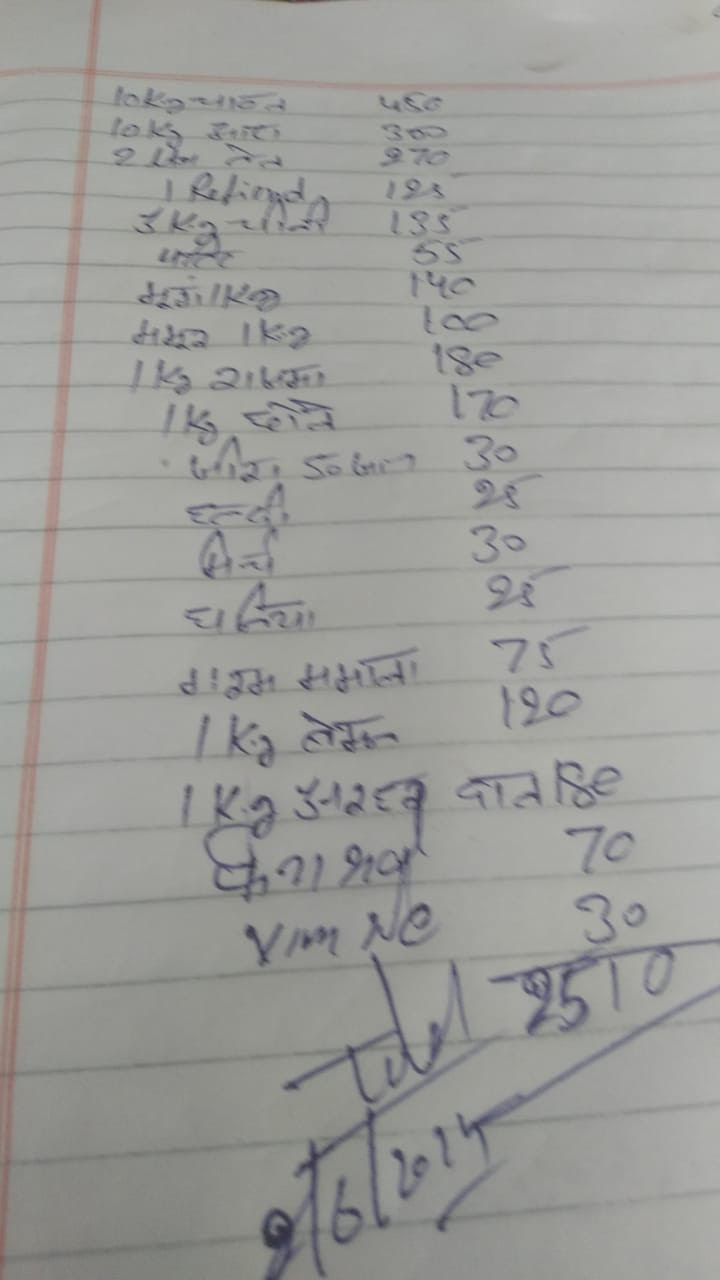 10 Kg चावल 450
10 Kg आटा 300
2 तेल 270
1 Refiond 125
3 Kg चीनी 135
55
1 Kg 140
मसूर 1 Kg 100
1 Kg राजमा 180
1 Kg छोले 170
जीरा 30
हल्दी 25
मिर्च 30
धनिया 25
गरम मसाला 75
1 Kg 120
1 Kg अरहर दाल 180
70
Vim 30
Total 2510
9/6/2024